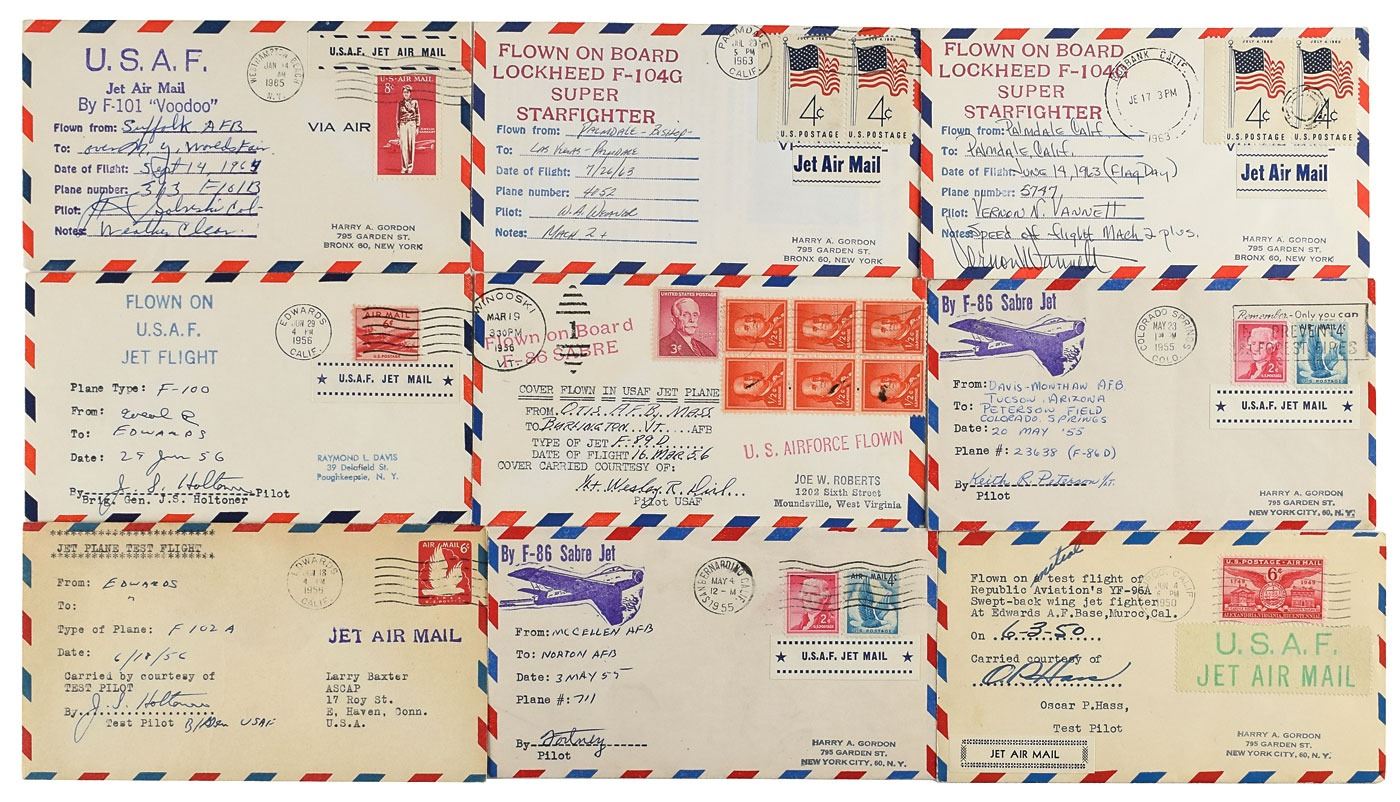 U.S.A.F.
Jet Air Mail
By F-101 "Voodoo"
Flown from: Suffolk AFB
To: over N.Y. Worlds Fair
Date of Flight: Sept 14, 1964
Plane number: 393 F-101B
Pilot: Col.
Notes: Weather Clear.
WESTHAMPTON BEACH
JAN 14
AM
1965
N.Y.
U.S.A.F. JET AIR MAIL
U.S. AIR MAIL
8¢
VIA AIR
HARRY A. GORDON
795 GARDEN ST.
BRONX 60, NEW YORK
FLOWN ON BOARD
LOCKHEED F-104G
SUPER
STARFIGHTER
Flown from: PALMDALE-BISHOP-
To: LAS VEGAS-PALMDALE
Date of Flight: 7/26/63
Plane number: 4052
Pilot: W.A. WEAVER
Notes: MACH 2+
PALMDALE
JUL 29
5 PM
1963
CALIF.
JULY 4, 1960
4¢
U.S. POSTAGE
JULY 4, 1960
4¢
U.S. POSTAGE
Jet Air Mail
HARRY A. GORDON
795 GARDEN ST.
BRONX 60, NEW YORK
FLOWN ON BOARD
LOCKHEED F-104G
SUPER
STARFIGHTER
Flown from: Palmdale Calif
To: Palmdale, Calif.
Date of Flight: JUNE 14, 1963 (Flag Day)
Plane number: 5747
Pilot: VERNON N. VANNETT
Notes: Speed of flight Mach 2 plus.
Vernon Vannett
BURBANK CALIF.
JE 17 3 PM
1963
JULY 4, 1960
4¢
U.S. POSTAGE
JULY 4, 1960
4¢
U.S. POSTAGE
Jet Air Mail
HARRY A. GORDON
795 GARDEN ST.
BRONX 60, NEW YORK
FLOWN ON
U.S.A.F.
JET FLIGHT
Plane Type: F-100
From:
To: EDWARDS
Date: 29 Jun 56
By J. S. Holtoner Pilot
Brig. Gen. J.S. Holtoner
EDWARDS
JUN 29
PM
1956
CALIF.
AIR MAIL
6¢
U.S. POSTAGE
★ U.S.A.F. JET MAIL ★
RAYMOND L. DAVIS
39 Delafield St.
Poughkeepsie, N. Y.
WINOOSKI
MAR 19
330PM
1956
VT.
1
Flown on Board
F-86 SABRE
UNITED STATES POSTAGE
3¢
1/2¢
1/2¢
1/2¢
1/2¢
1/2¢
1/2¢
COVER FLOWN IN USAF JET PLANE
FROM OTIS A.F.B. Mass
TO Burlington Vt. AFB
TYPE OF JET F.89 D
DATE OF FLIGHT 16 Mar 56
COVER CARRIED COURTESY OF:
Wesley R.
Pilot USAF
U. S. AIRFORCE FLOWN
JOE W. ROBERTS
1202 Sixth Street
Moundsville, West Virginia
By F-86 Sabre Jet
From: DAVIS-MONTHAN AFB
TUCSON, ARIZONA
To: PETERSON FIELD
COLORADO SPRINGS
Date: 20 MAY '55
Plane #: 23638 (F-86D)
By Keith R. Peterson
Pilot
COLORADO SPRINGS
MAY 23
PM
1955
COLO.
Remember-Only you can
PREVENT
FOREST FIRES
2¢
AIR MAIL 4¢
★ U.S.A.F. JET MAIL ★
HARRY A. GORDON
795 GARDEN ST.
NEW YORK CITY, 60, N.Y.
JET PLANE TEST FLIGHT
From: EDWARDS
To:
Type of Plane: F 102 A
Date: 6/18/56
Carried by courtesy of
TEST PILOT
By J. S. Holtoner
Test Pilot B/Gen USAF
EDWARDS
18
PM
1956
CALIF.
AIR MAIL 6¢
JET AIR MAIL
Larry Baxter
ASCAP
17 Roy St.
E. Haven, Conn.
U.S.A.
By F-86 Sabre Jet
From: MCCELLEN AFB
To: NORTON AFB
Date: 3 MAY 55
Plane #: 711
By Fortney
Pilot
SAN BERNARDINO CALIF.
MAY 4
12-M
1955
2¢
AIR MAIL 4¢
★ U.S.A.F. JET MAIL ★
HARRY A. GORDON
795 GARDEN ST.
NEW YORK CITY, 60, N.Y.
initial
Flown on test flight of
Republic Aviation's YF-96A
Swept-back wing jet fighter
At Edwards A.F.Base, Muroc, Cal.
On 6-3-50
Carried courtesy of
O. P. Hass
Oscar P.Hass,
Test Pilot
JET AIR MAIL
CALIF
4
PM
1950
U.S. POSTAGE · AIR MAIL
1749 6¢ 1949
ALEXANDRIA, VIRGINIA, BICENTENNIAL
U.S.A.F.
JET AIR MAIL
HARRY A. GORDON
795 GARDEN ST.
NEW YORK CITY, 60, N.Y.